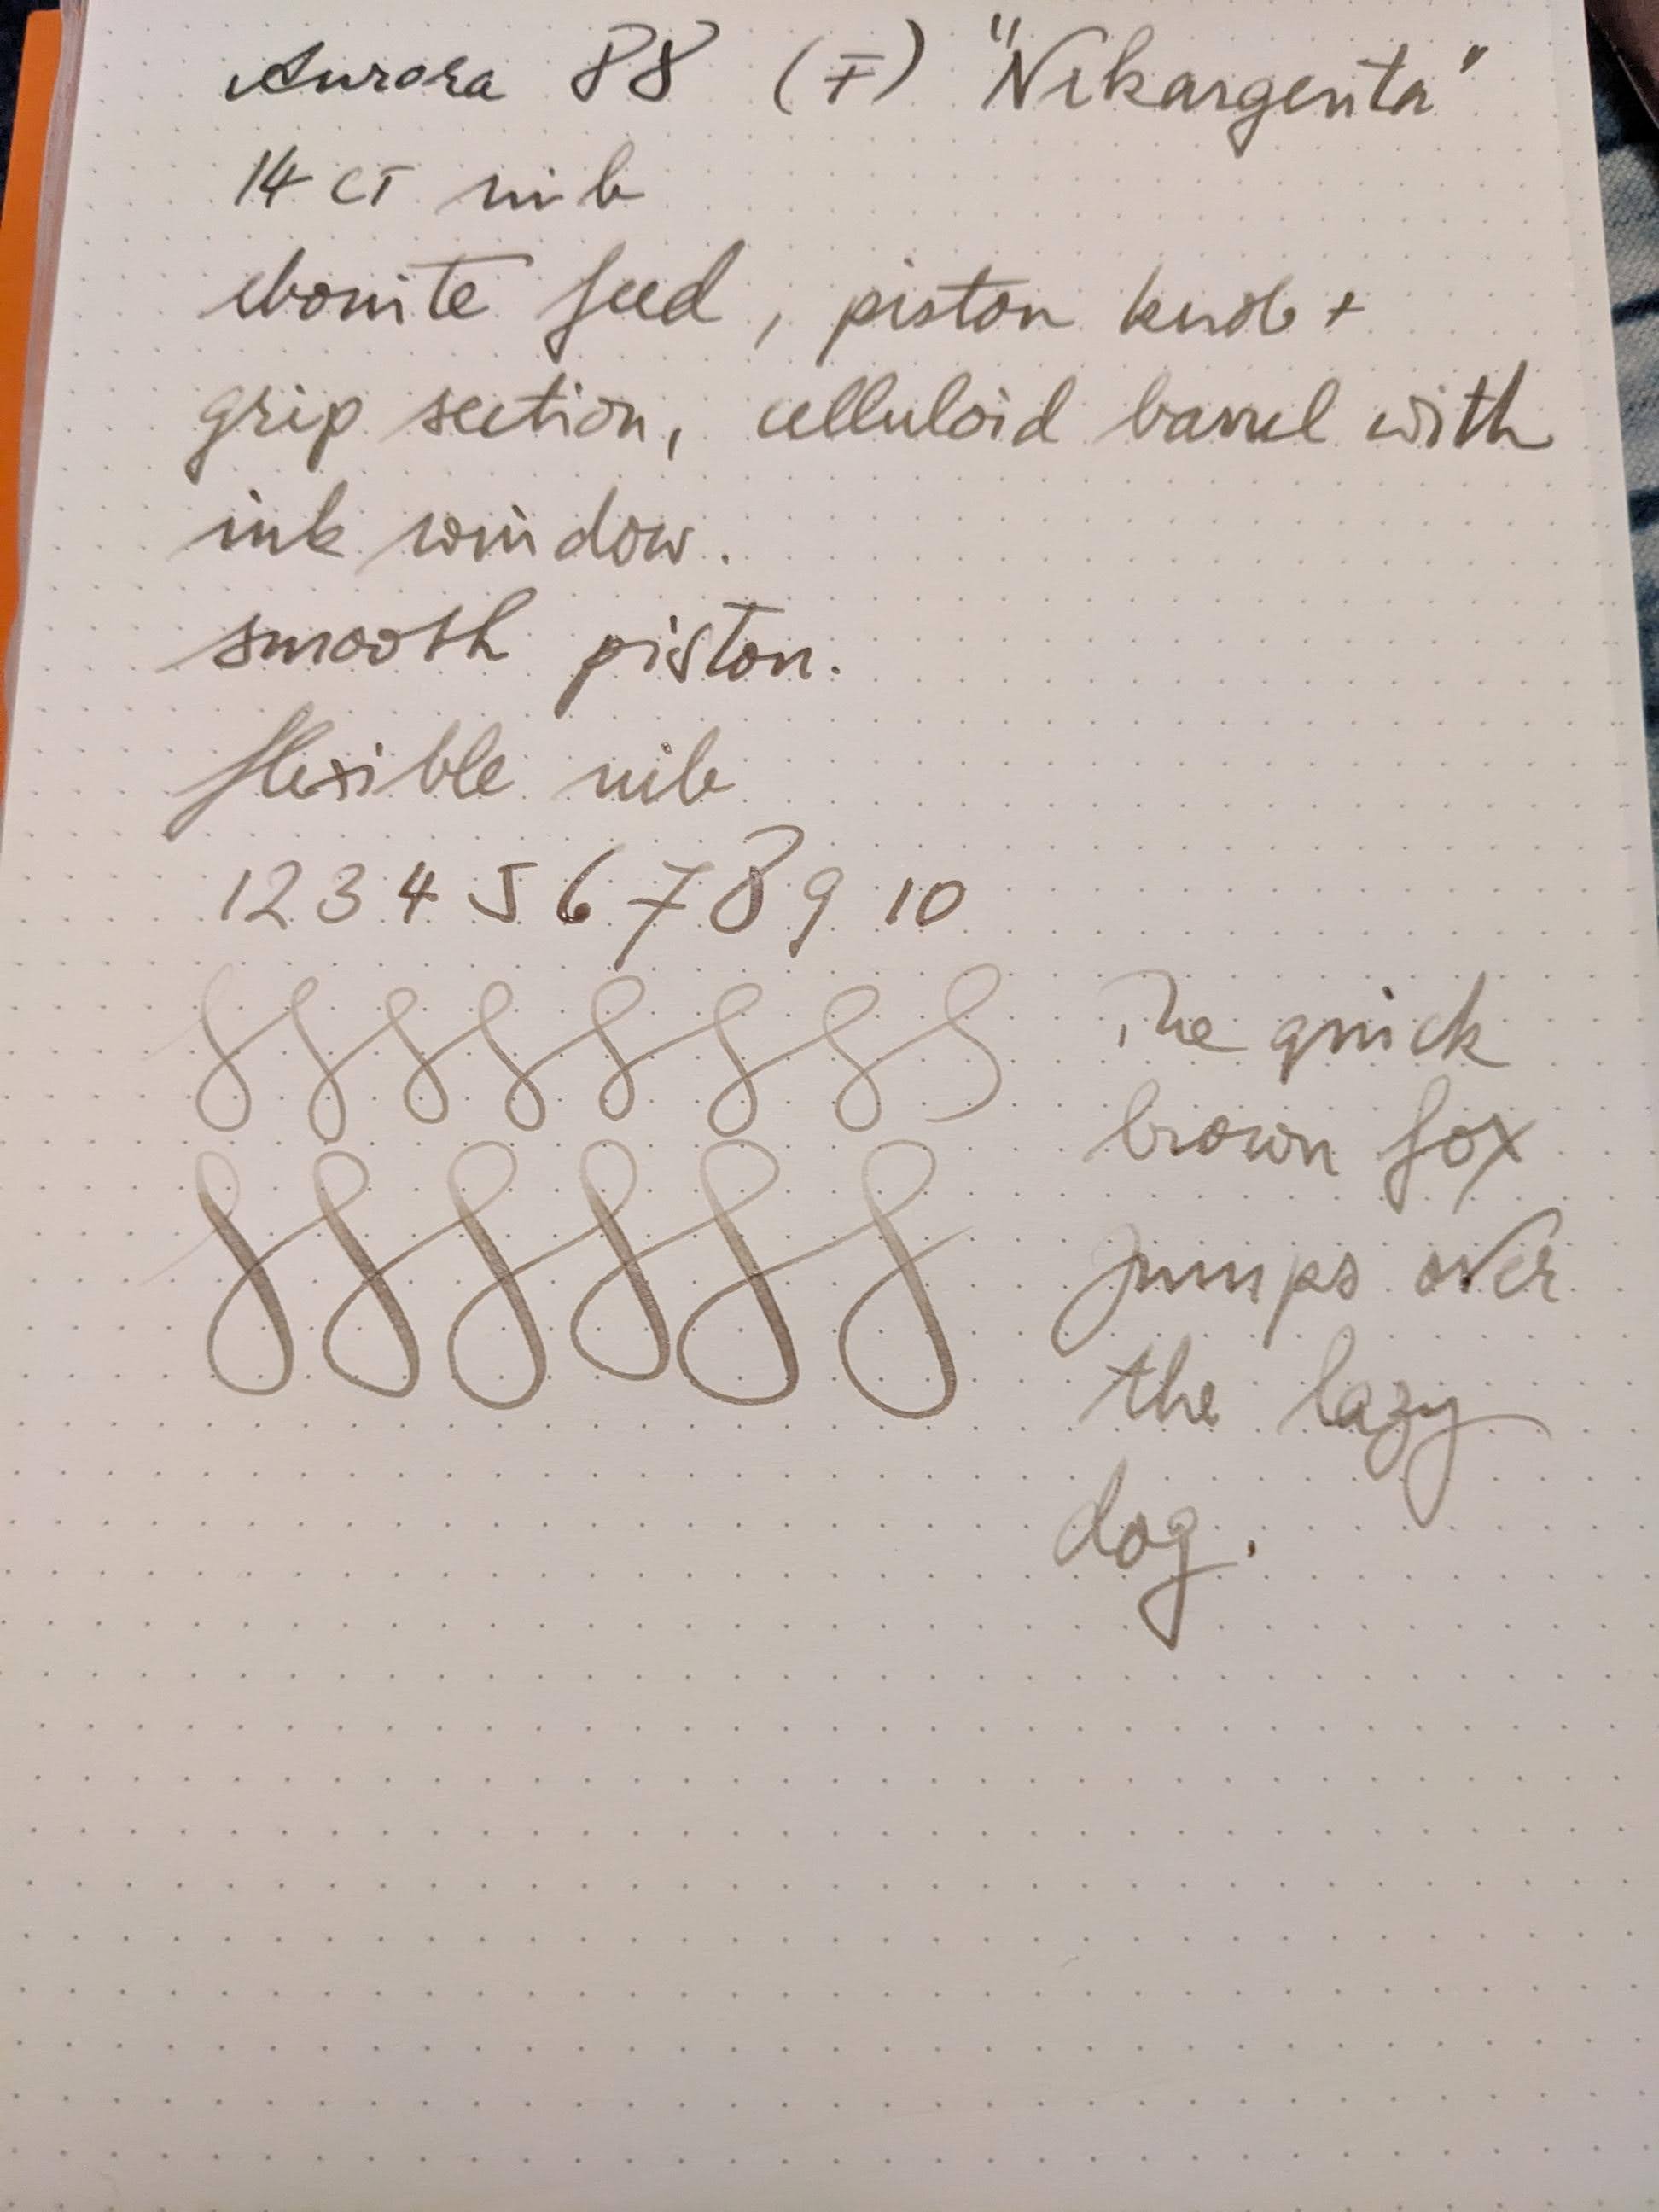 Aurora 88 (F) "Nikargenta"
14 CT nib
ebonite feed, piston knob +
grip section, celluloid barrel with
ink window.
smooth piston.
flexible nib
1 2 3 4 5 6 7 8 9 10
The quick
brown fox
jumps over
the lazy
dog.